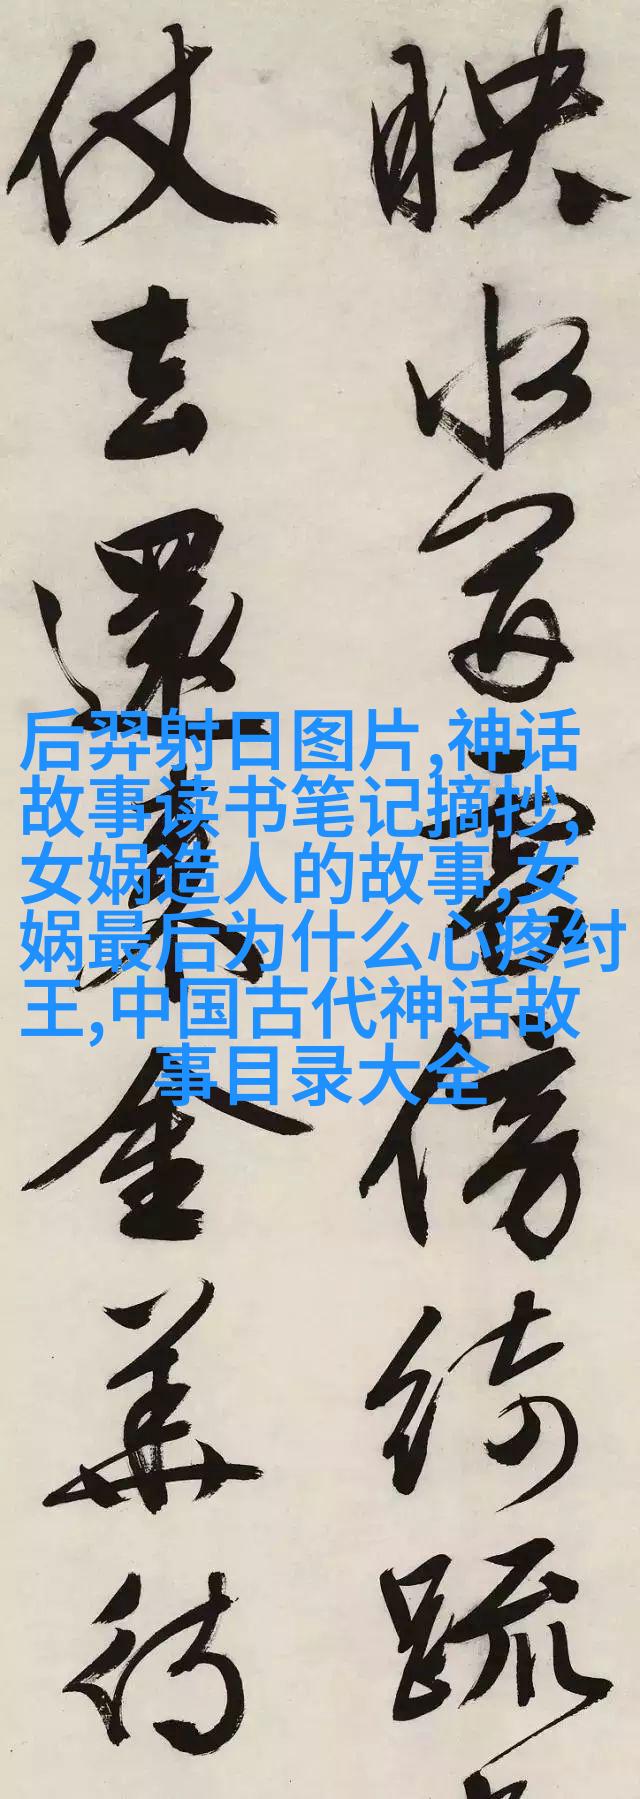 映水写雲信綺疏
仗去還来金華待
后羿射日图片,神话
故事读书笔记摘抄,
女娲造人的故事,女
娲最后为什么心疼纣
王,中国古代神话故
事目录大全